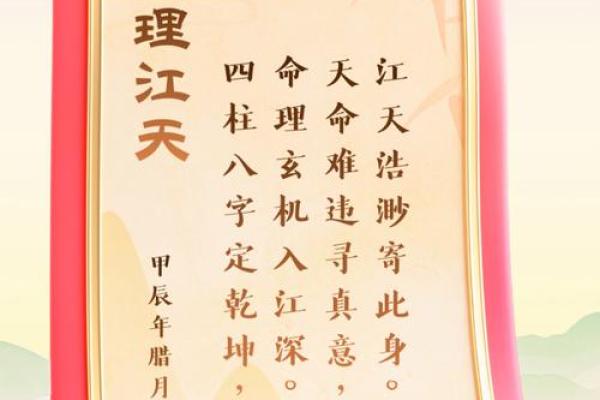 理江天
四柱八字定乾坤，
命理玄机入江深。
天命难违寻真意，
江天浩渺寄此身。
甲辰年腊月